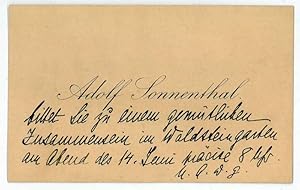 Adolf Sonnenthal.
bittet Sie zu einem gemütlichen
Zusammensein im Waldsteingarten
am Abend des 14. Juni präcise 8 Uhr.
U. A. W. G.